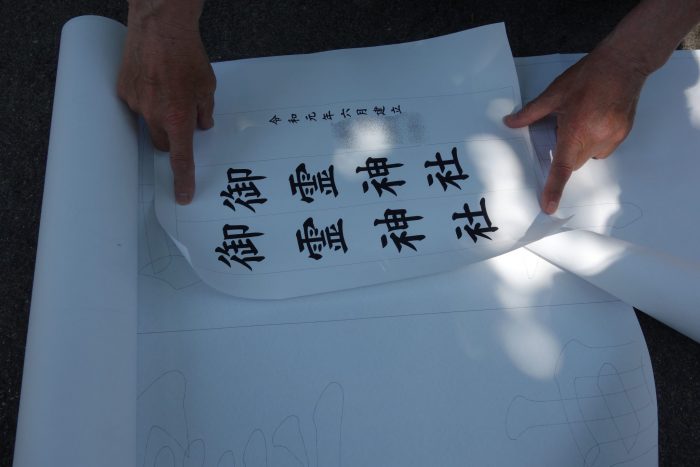 令和元年六月建立
御霊神社
御霊神社